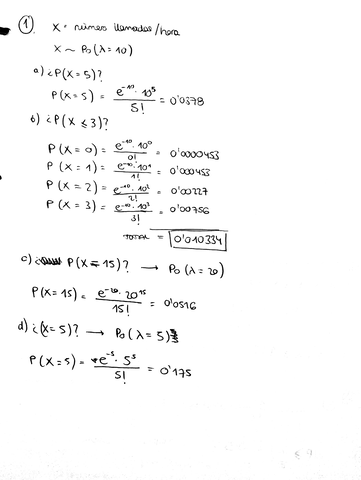 1) X = númes llamadas/hora
X ~ Po (λ = 10)
a) ¿P(X = 5)?
P(X = 5) = e⁻¹⁰ · 10⁵ / 5! = 0'0378
b) ¿P(X ≤ 3)?
P(X = 0) = e⁻¹⁰ · 10⁰ / 0! = 0'0000453
P(X = 1) = e⁻¹⁰ · 10¹ / 1! = 0'000453
P(X = 2) = e⁻¹⁰ · 10² / 2! = 0'00227
P(X = 3) = e⁻¹⁰ · 10³ / 3! = 0'00756
TOTAL = 0'010334
c) ¿P(X = 15)? → Po (λ = 20)
P(X = 15) = e⁻²⁰ · 20¹⁵ / 15! = 0'0516
d) ¿(X = 5)? → Po (λ = 5)
P(X = 5) = e⁻⁵ · 5⁵ / 5! = 0'175